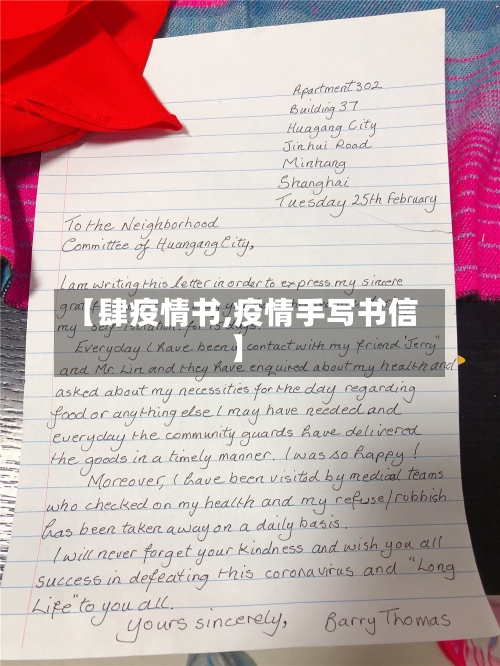 Apartment 302
Building 37
Huagang City
Jinhui Road
Minhang
Shanghai
Tuesday 25th February
To the Neighborhood
Committee of Huangang City,
I am writing this letter in order to express my sincere
【肆疫情书,疫情手写书信
】
my
Everyday I have been in contact with my friend "Jerry"
and Mr. Lin and they have enquired about my health and
asked about my necessities for the day regarding
food or anything else I may have needed and
everyday the community guards have delivered
the goods in a timely manner. I was so happy!
Moreover, I have been visited by medical teams
who checked on my health and my refuse/rubbish
has been taken away on a daily basis.
I will never forget your kindness and wish you all
success in defeating this coronavirus and "Long
Life" to you all.
Yours sincerely, Barry Thomas